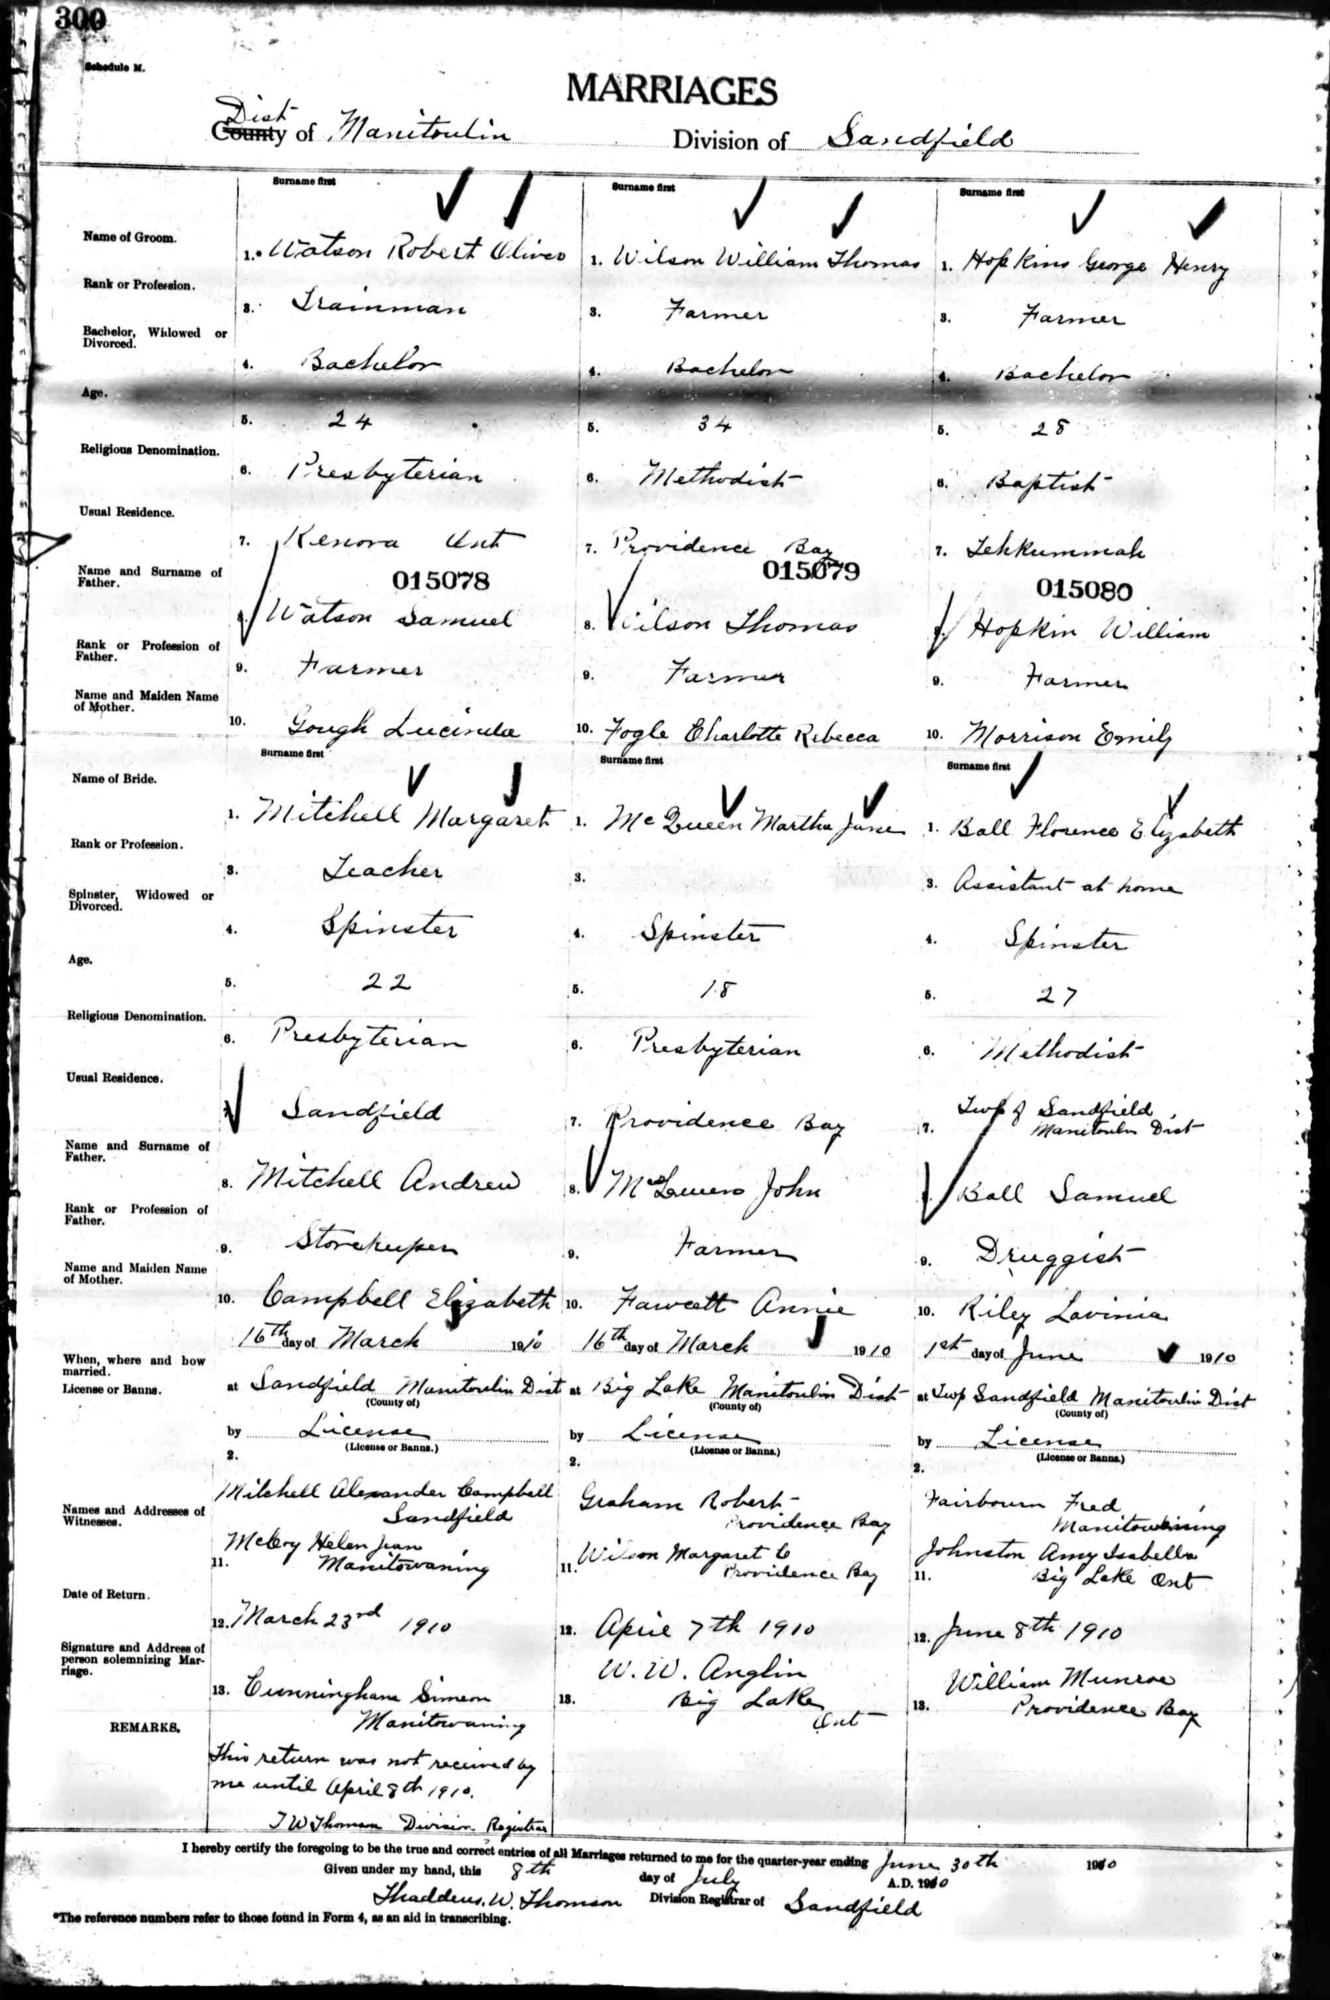 300
Schedule M.
MARRIAGES
Dist
County of Manitoulin Division of Sandfield
Surname first Surname first Surname first
Name of Groom. 1.* Watson Robert Oliver 1. Wilson William Thomas 1. Hopkins George Henry
Rank or Profession. 3. Trainman 3. Farmer 3. Farmer
Bachelor, Widowed or Divorced. 4. Bachelor 4. Bachelor 4. Bachelor
Age. 5. 24 5. 34 5. 28
Religious Denomination. 6. Presbyterian 6. Methodist 6. Baptist
Usual Residence. 7. Kenora Ont 7. Providence Bay 7. Tehkummah
015078 015079 015080
Name and Surname of Father. 8. Watson Samuel 8. Wilson Thomas 8. Hopkin William
Rank or Profession of Father. 9. Farmer 9. Farmer 9. Farmer
Name and Maiden Name of Mother. 10. Gough Lucinda 10. Fogle Charlotte Rebecca 10. Morrison Emily
Surname first Surname first Surname first
Name of Bride. 1. Mitchell Margaret 1. McQueen Martha Jane 1. Ball Florence Elizabeth
Rank or Profession. 3. Teacher 3. 3. Assistant at home
Spinster, Widowed or Divorced. 4. Spinster 4. Spinster 4. Spinster
Age. 5. 22 5. 18 5. 27
Religious Denomination. 6. Presbyterian 6. Presbyterian 6. Methodist
Usual Residence. 7. Sandfield 7. Providence Bay 7. Twp of Sandfield
Manitoulin Dist
Name and Surname of Father. 8. Mitchell Andrew 8. John 8. Ball Samuel
Rank or Profession of Father. 9. Storekeeper 9. Farmer 9. Druggist
Name and Maiden Name of Mother. 10. Campbell Elizabeth 10. Fawcett Annie 10. Riley Lavinia
16th day of March 1910 16th day of March 1910 1st day of June 1910
When, where and how married.
License or Banns. at Sandfield Manitoulin Dist at Big Lake Manitoulin Dist at Twp Sandfield Manitoulin Dist
(County of) (County of) (County of)
by License by License by License
(License or Banns.) (License or Banns.) (License or Banns.)
2. 2. 2.
Mitchell Alexander Campbell Graham Robert Fairbourn Fred
Names and Addresses of Witnesses. Sandfield Providence Bay Manitowaning
McCoy Helen Jean Wilson Margaret C Johnston Amy Isabella
11. Manitowaning 11. Providence Bay 11. Big Lake Ont
Date of Return. 12. March 23rd 1910 12. April 7th 1910 12. June 8th 1910
Signature and Address of person solemnizing Marriage. W. W. Anglin William Munroe
13. Cunningham Simeon 13. Big Lake 13. Providence Bay
Manitowaning Ont
REMARKS.
This return was not received by
me until April 8th 1910.
T W Thomson Division Registrar
I hereby certify the foregoing to be the true and correct entries of all Marriages returned to me for the quarter-year ending June 30th 1910
Given under my hand, this 8th day of July A.D. 1910
Thaddeus. W. Thomson Division Registrar of Sandfield
*The reference numbers refer to those found in Form 4, as an aid in transcribing.